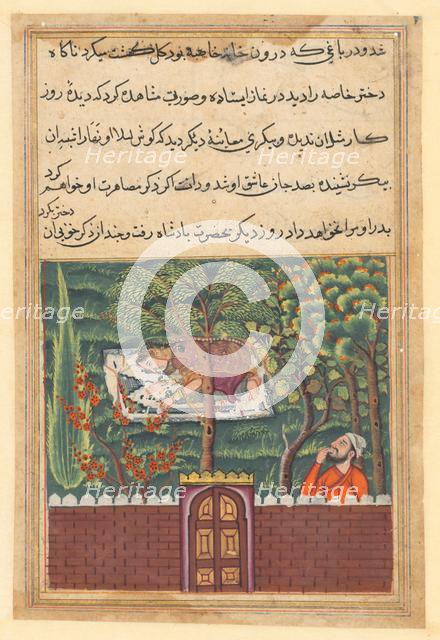 خود در باغی که درون خانهٔ خاصه بود گل گشت میکرد ناگاه
دختر خاصه را دید در نماز ایستاده و صورتی مشاهده کرد که دیدهٔ روز
کار مثل ان ندیده و پیکری معاینهٔ دیگر دید که گوش لیلا و نهار
پیکر نشنیده بصد جان عاشق او شد و رانت کرد که مصاهرت او خواهم کرد
پدر او مرا نخواهد داد روز دیگر بحضرت بادشاه رفت و چند از ذکر خوبی ان
دختر بکرد
Heritage
Heritage
Heritage
Heritage
Heritage
Heritage
Heritage
Heritage
Heritage